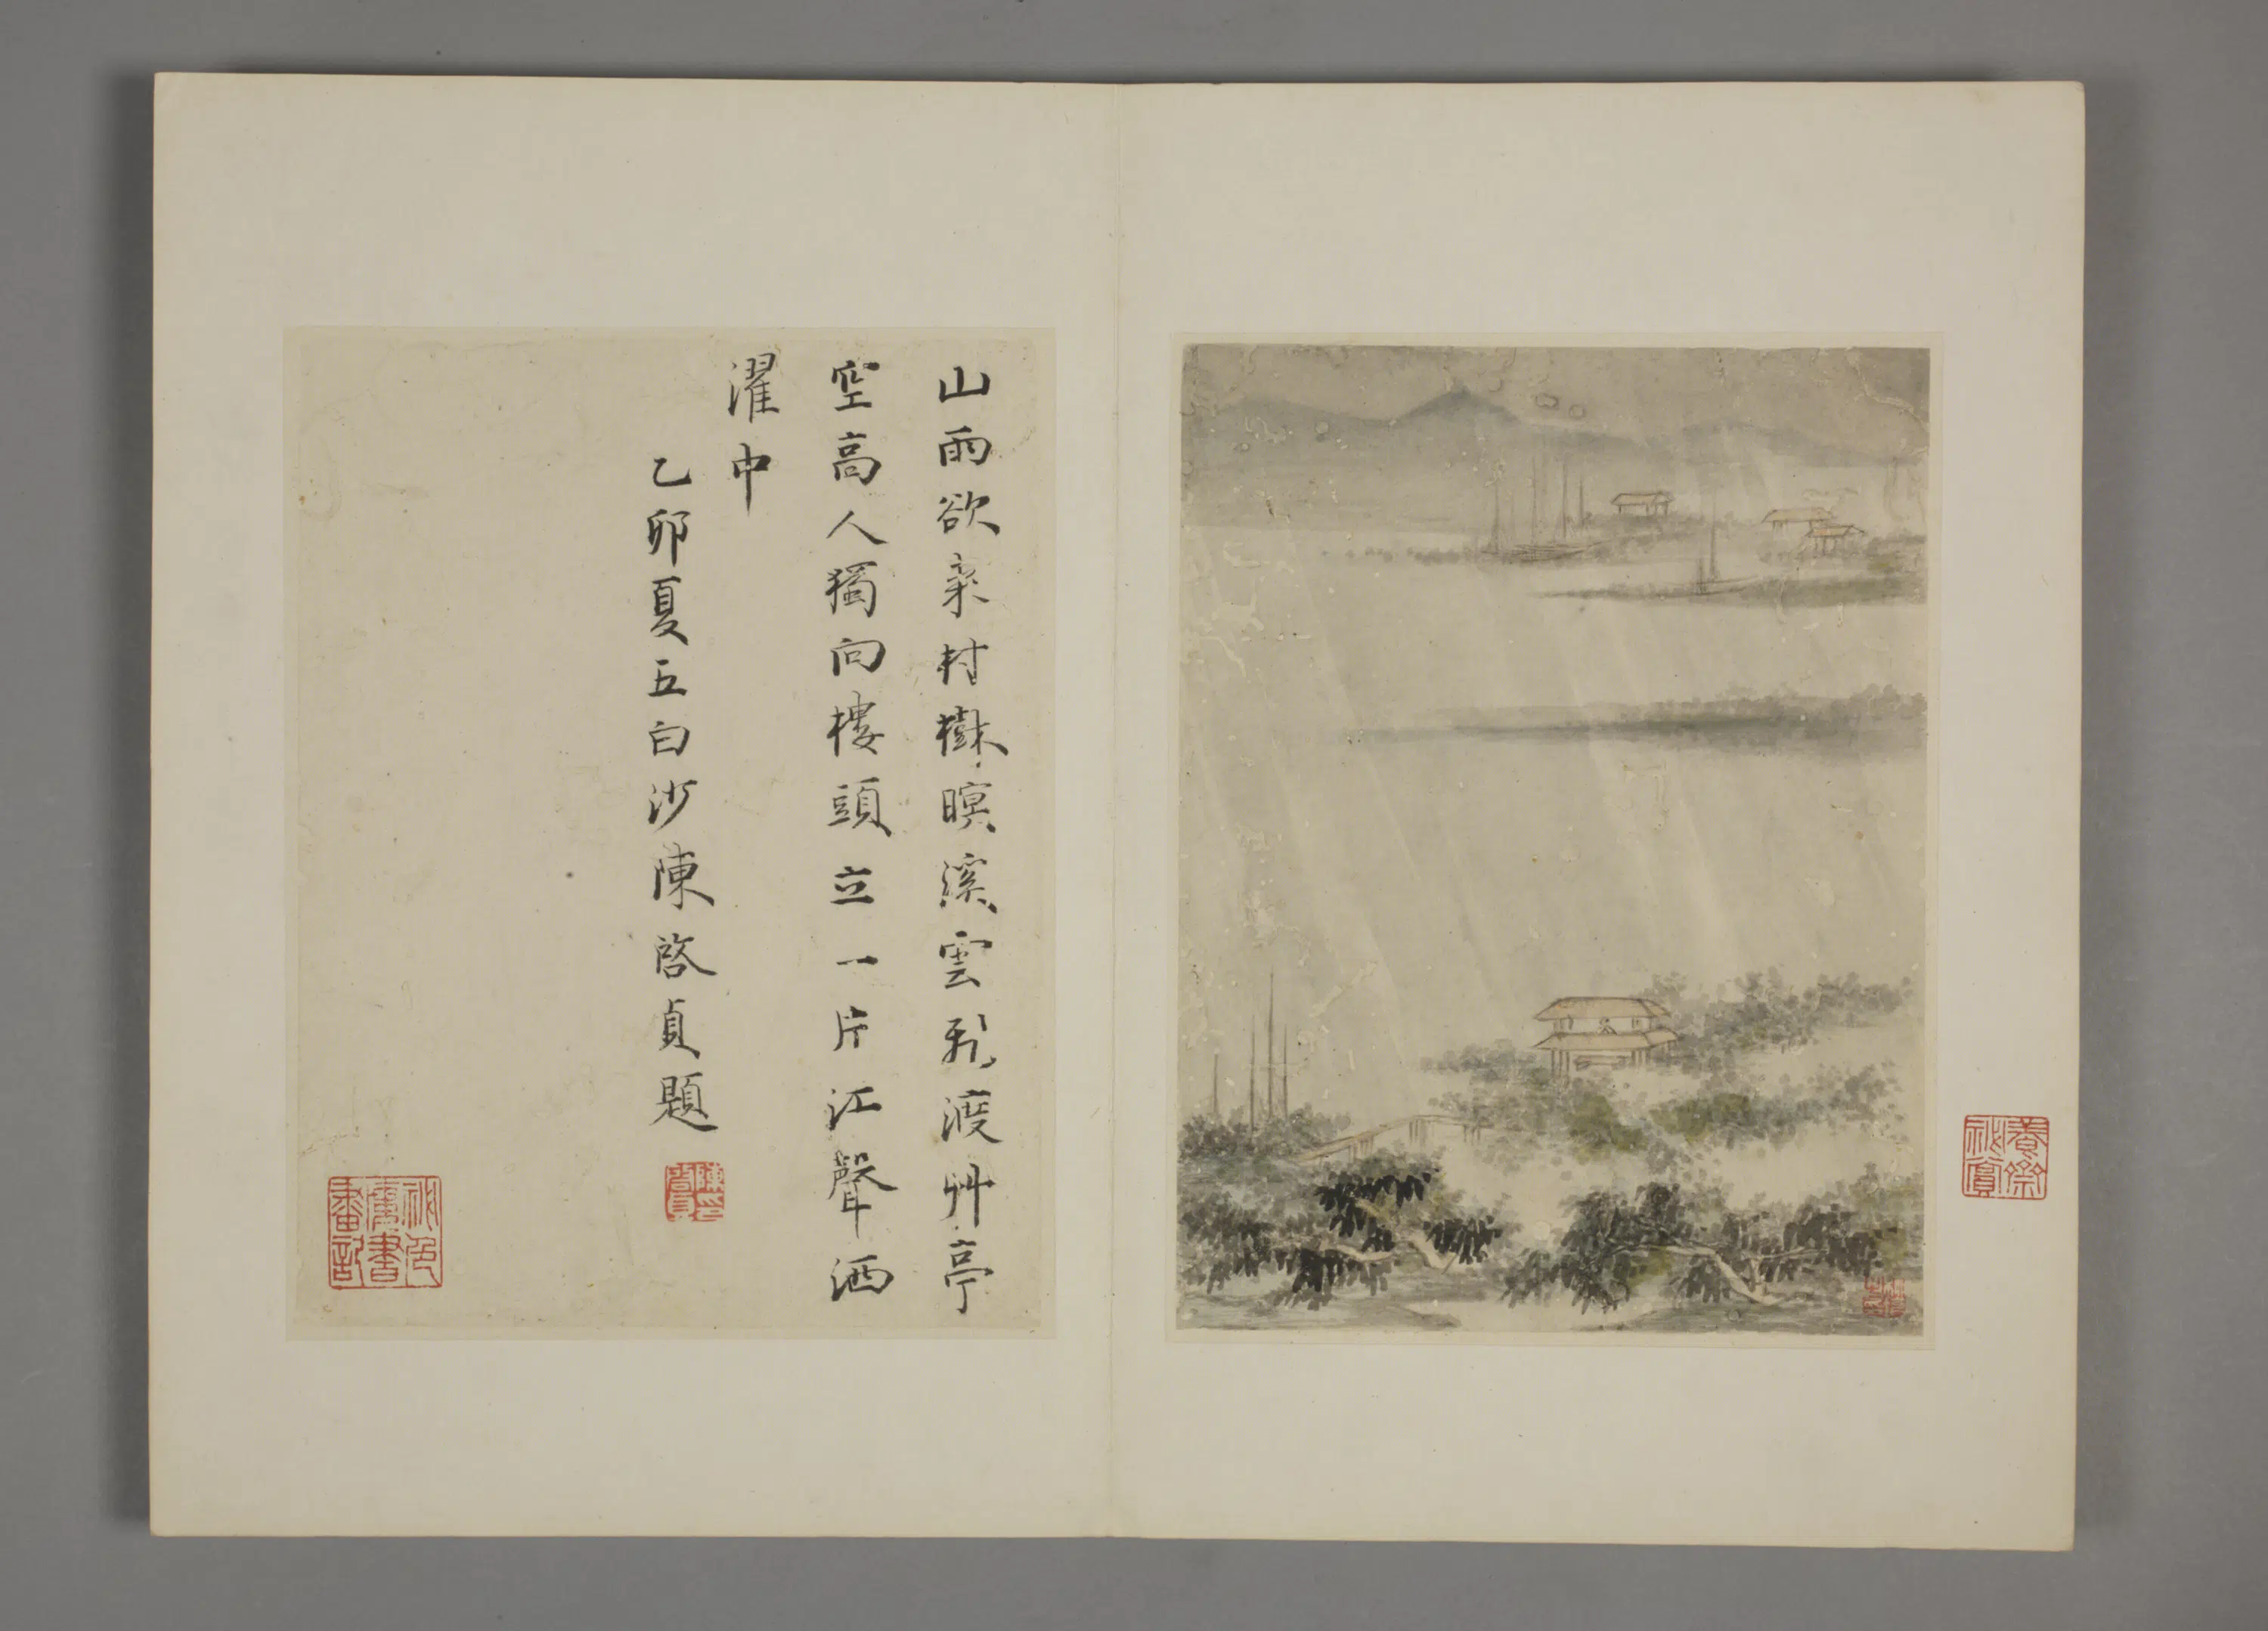 山雨欲來村樹暝溪雲飛渡艸亭
空高人獨向樓頭立一片江聲洒
濯中
乙卯夏五白沙陳啓貞題